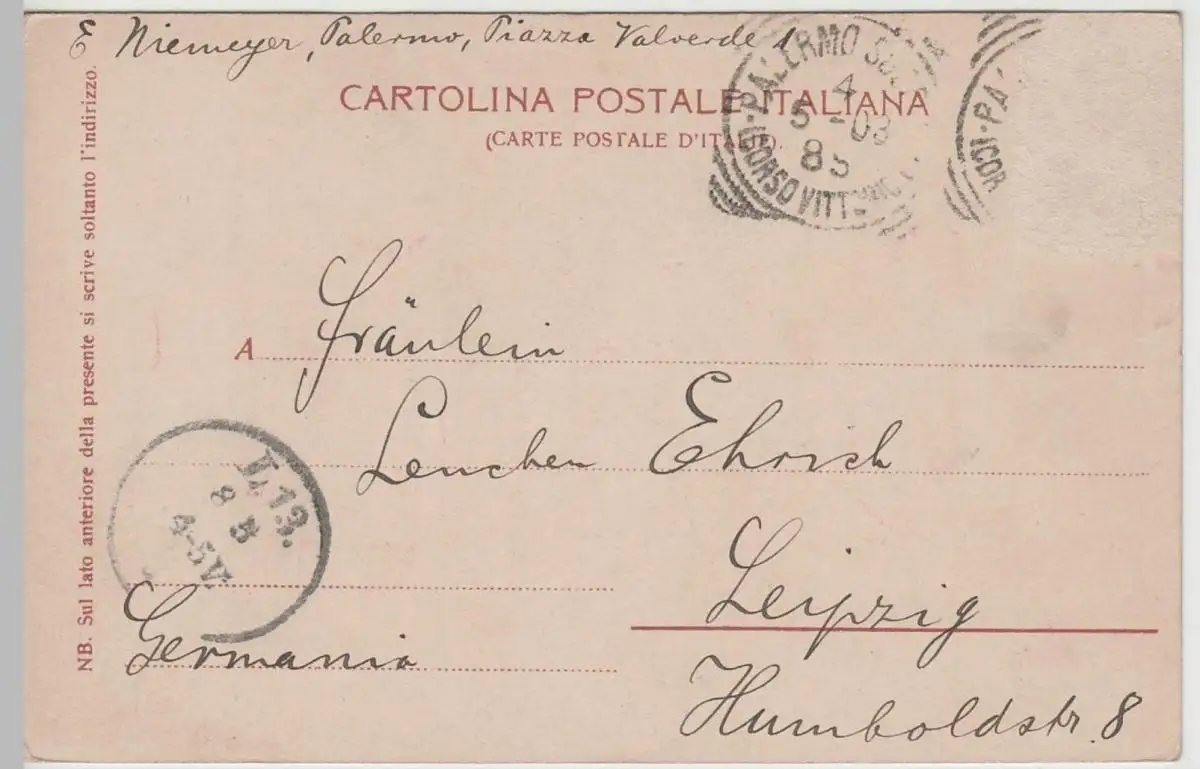 E Niemeyer, Palermo, Piazza Valverde 1
CARTOLINA POSTALE ITALIANA
(CARTE POSTALE D'ITALIE).
PALERMO
4
5 - 03
8S
CORSO VITT
PA
COR
NB. Sul lato anteriore della presente si scrive soltanto l'indirizzo.
A Fräulein
Lenchen Ehrich
L 13.
8 5
4-5V
Leipzig
Germania
Humboldstr. 8